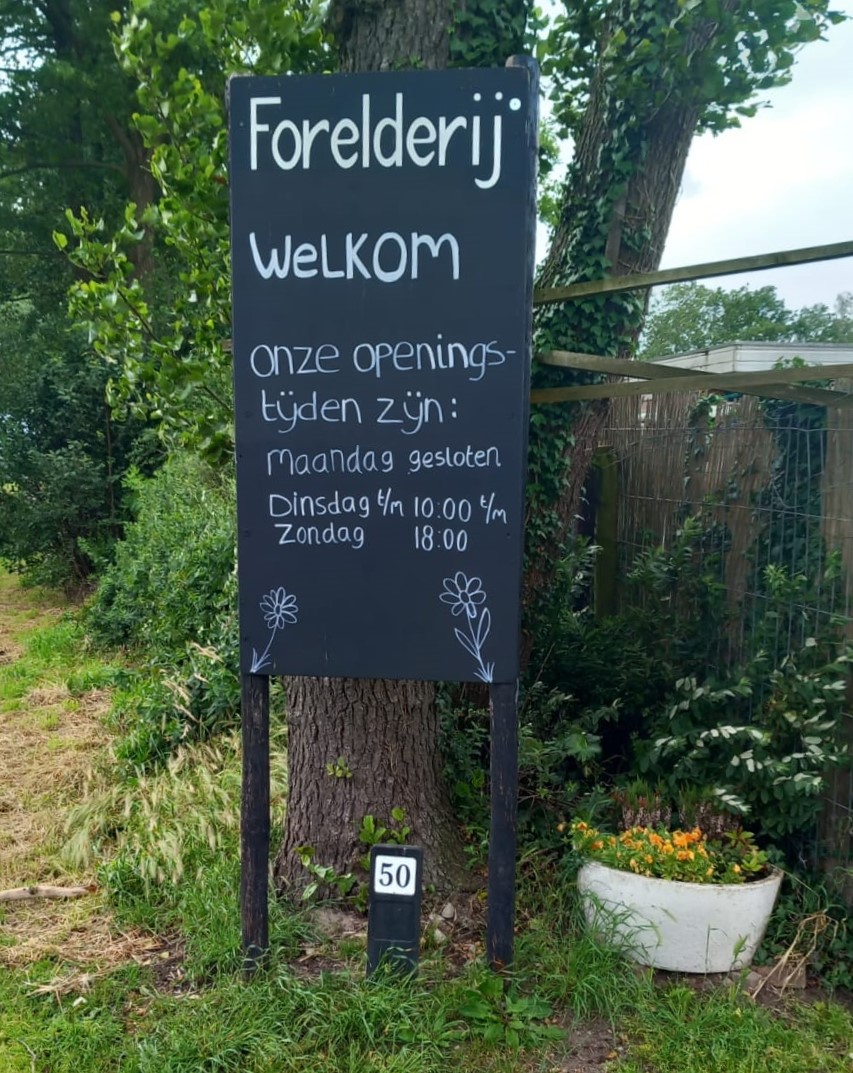 Forelderij
WELKOM
onze openings-
tijden zijn:
Maandag gesloten
Dinsdag t/m 10:00 t/m
Zondag 18:00
50